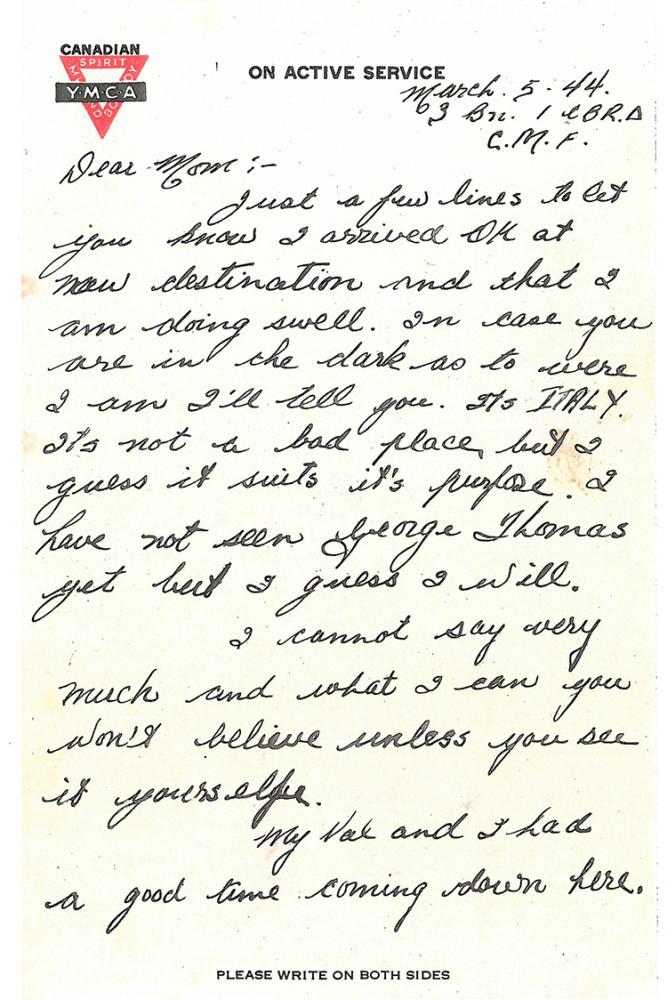 CANADIAN
SPIRIT
Y·M·C·A
MIND BODY
ON ACTIVE SERVICE
March. 5 - 44.
3 Bn. 1 CBRD
C.M.F.
Dear Mom :-
Just a few lines to let
you know I arrived OK at
new destination and that I
am doing swell. In case you
are in the dark as to were
I am I'll tell you. Its ITALY.
It's not a bad place, but I
guess it suits it's purpose. I
have not seen George Thomas
yet but I guess I will.
I cannot say very
much and what I can you
won't believe unless you see
it yourselfe.
My Val and I had
a good time coming down here.
PLEASE WRITE ON BOTH SIDES